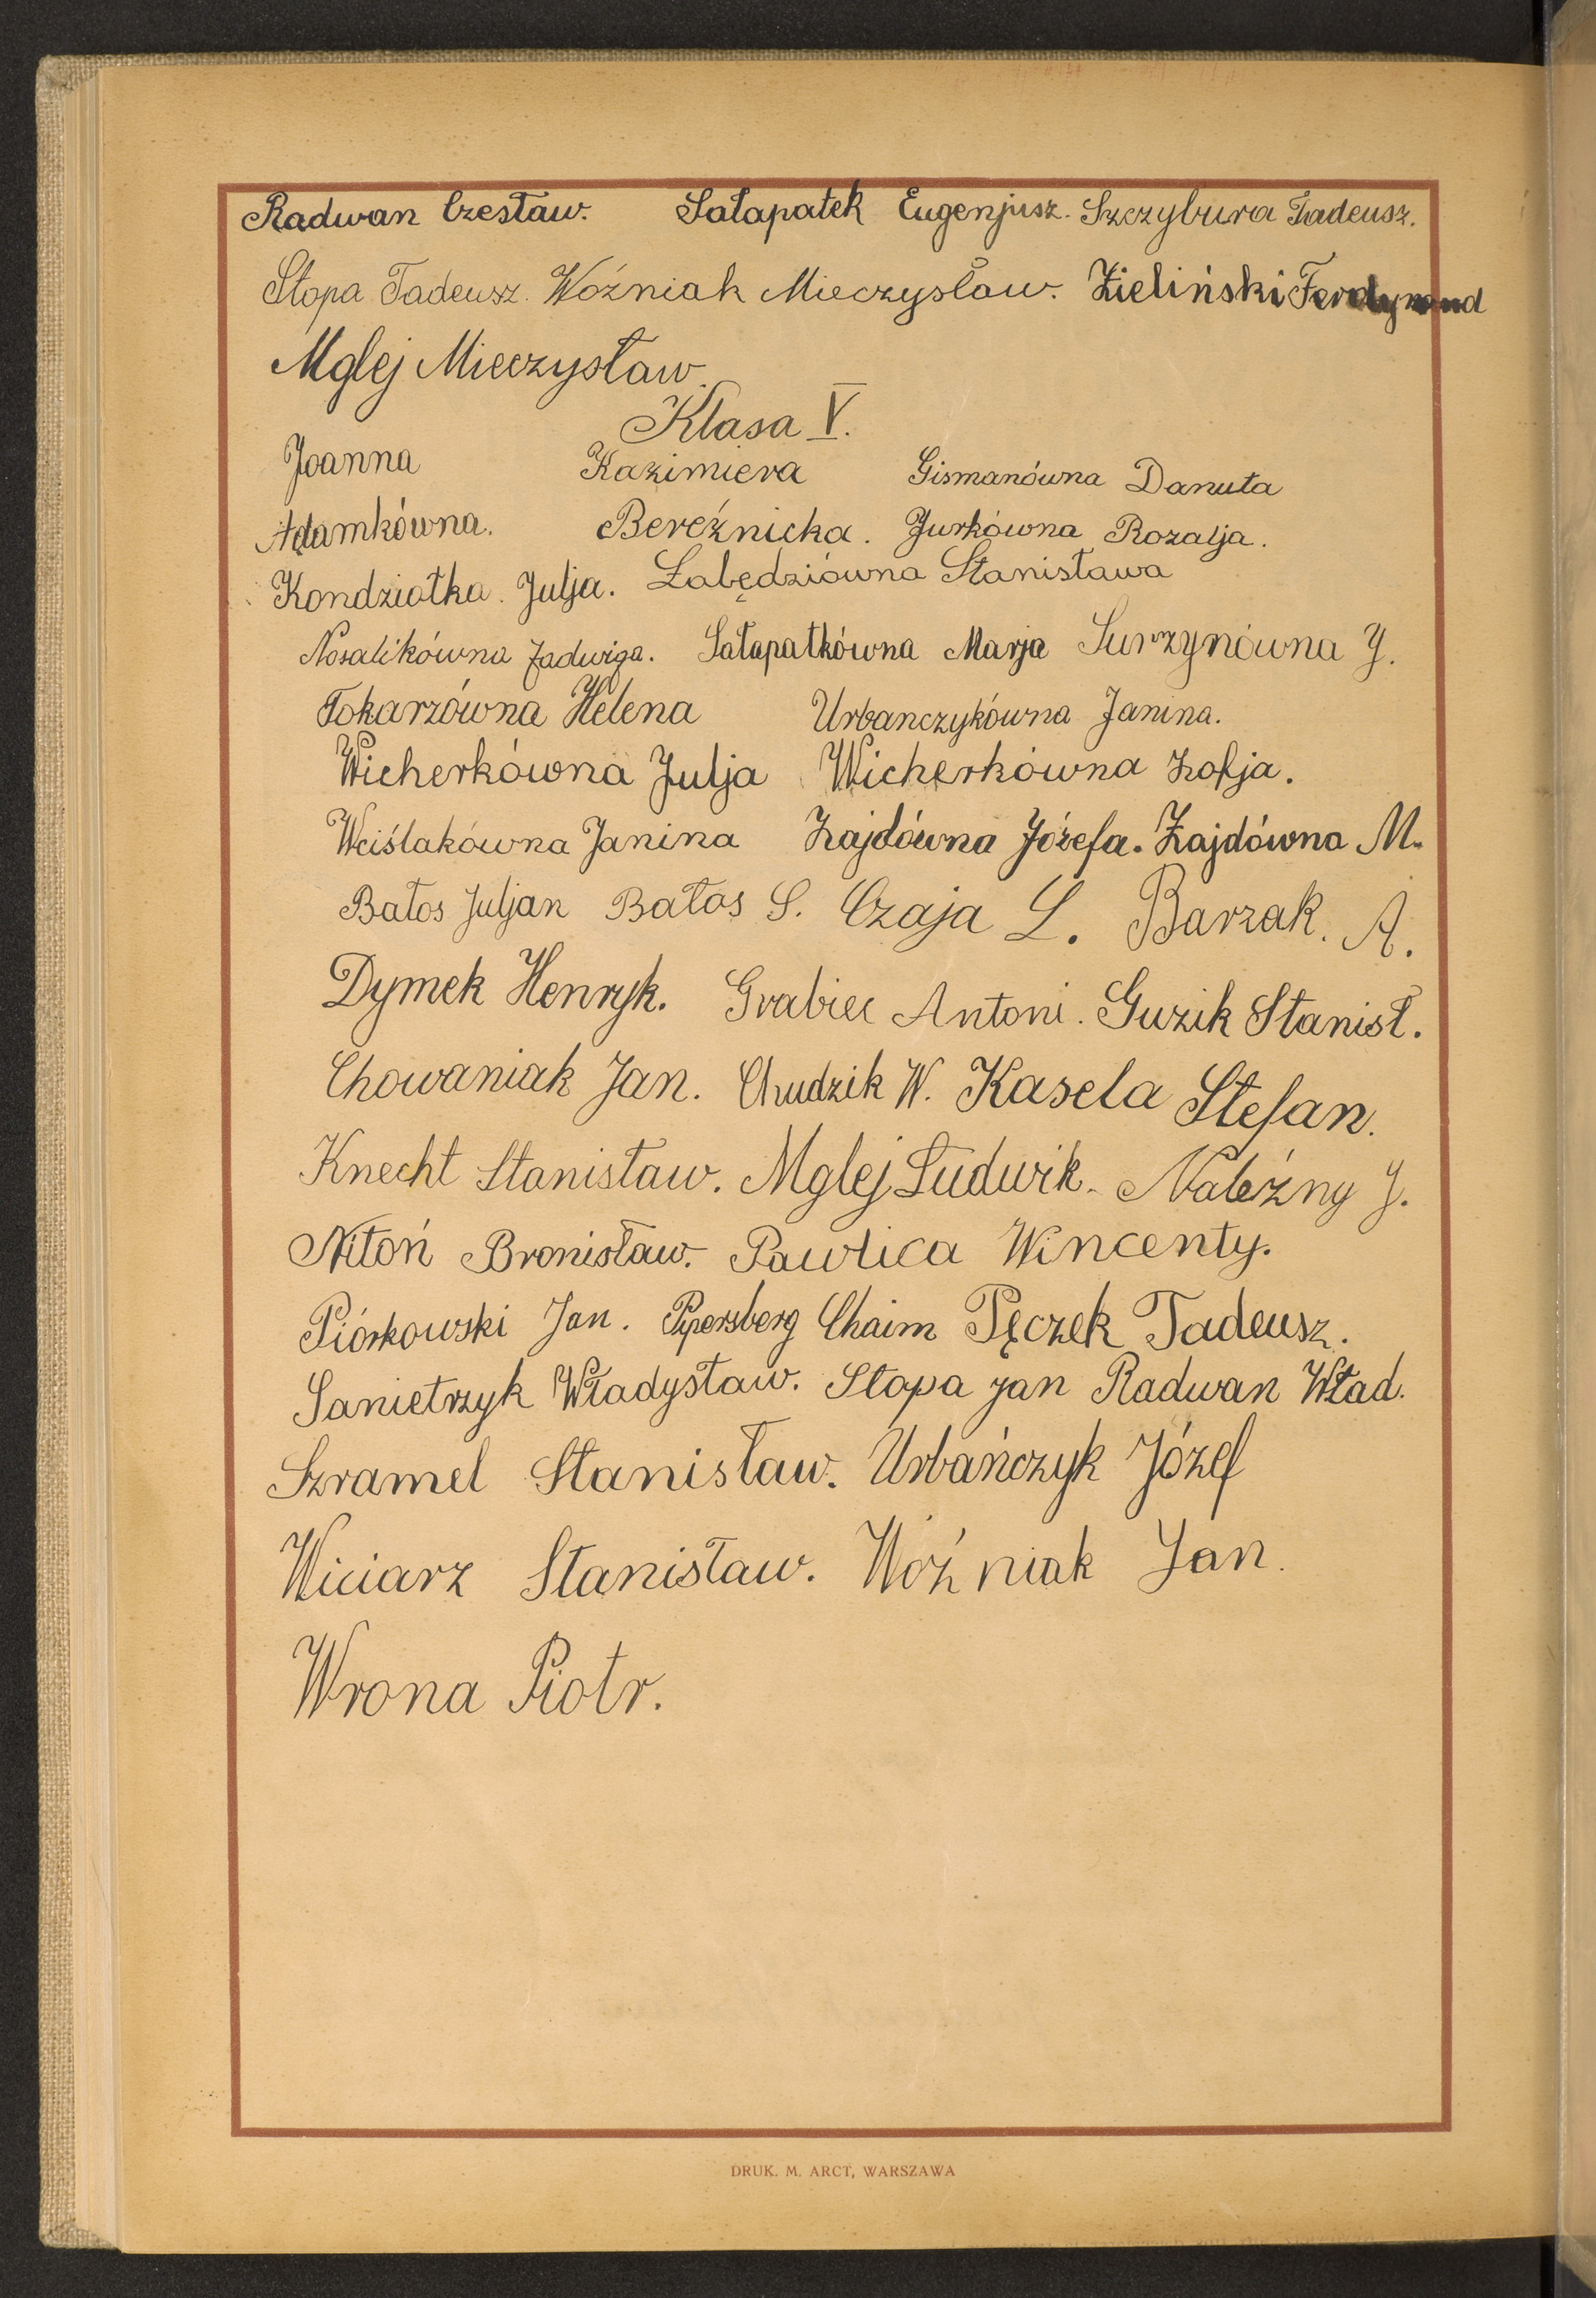 Radwan Czesław. Sałapatek Eugenjusz. Szczybura Tadeusz.
Stopa Tadeusz. Woźniak Mieczysław. Zieliński Ferdynand
Mglej Mieczysław.
Klasa V.
Joanna Kazimiera Gismanówna Danuta
Adamkówna. Bereźnicka. Jurkówna Rozalja.
Kondziołka Julja. Łabędziówna Stanisława
Nosalikówna Jadwiga. Sałapatkówna Marja Surzynówna J.
Tokarzówna Helena Urbanczykówna Janina.
Wicherkówna Julja Wicherkówna Zofja.
Weiślakówna Janina Zajdówna Józefa. Zajdówna M.
Batos Juljan Batos S. Czaja L. Barzak. A.
Dymek Henryk. Grabiec Antoni. Guzik Stanisł.
Chowaniak Jan. Chudzik W. Kasela Stefan.
Knecht Stanisław. Mglej Ludwik. Należny J.
Nitoń Bronisław. Pawlica Wincenty.
Piórkowski Jan. Pipersberg Chaim Pęczek Tadeusz.
Sanietrzyk Władysław. Stopa Jan Radwan Wład.
Szramel Stanisław. Urbańczyk Józef
Wiciarz Stanisław. Woźniak Jan.
Wrona Piotr.
DRUK. M. ARCT, WARSZAWA